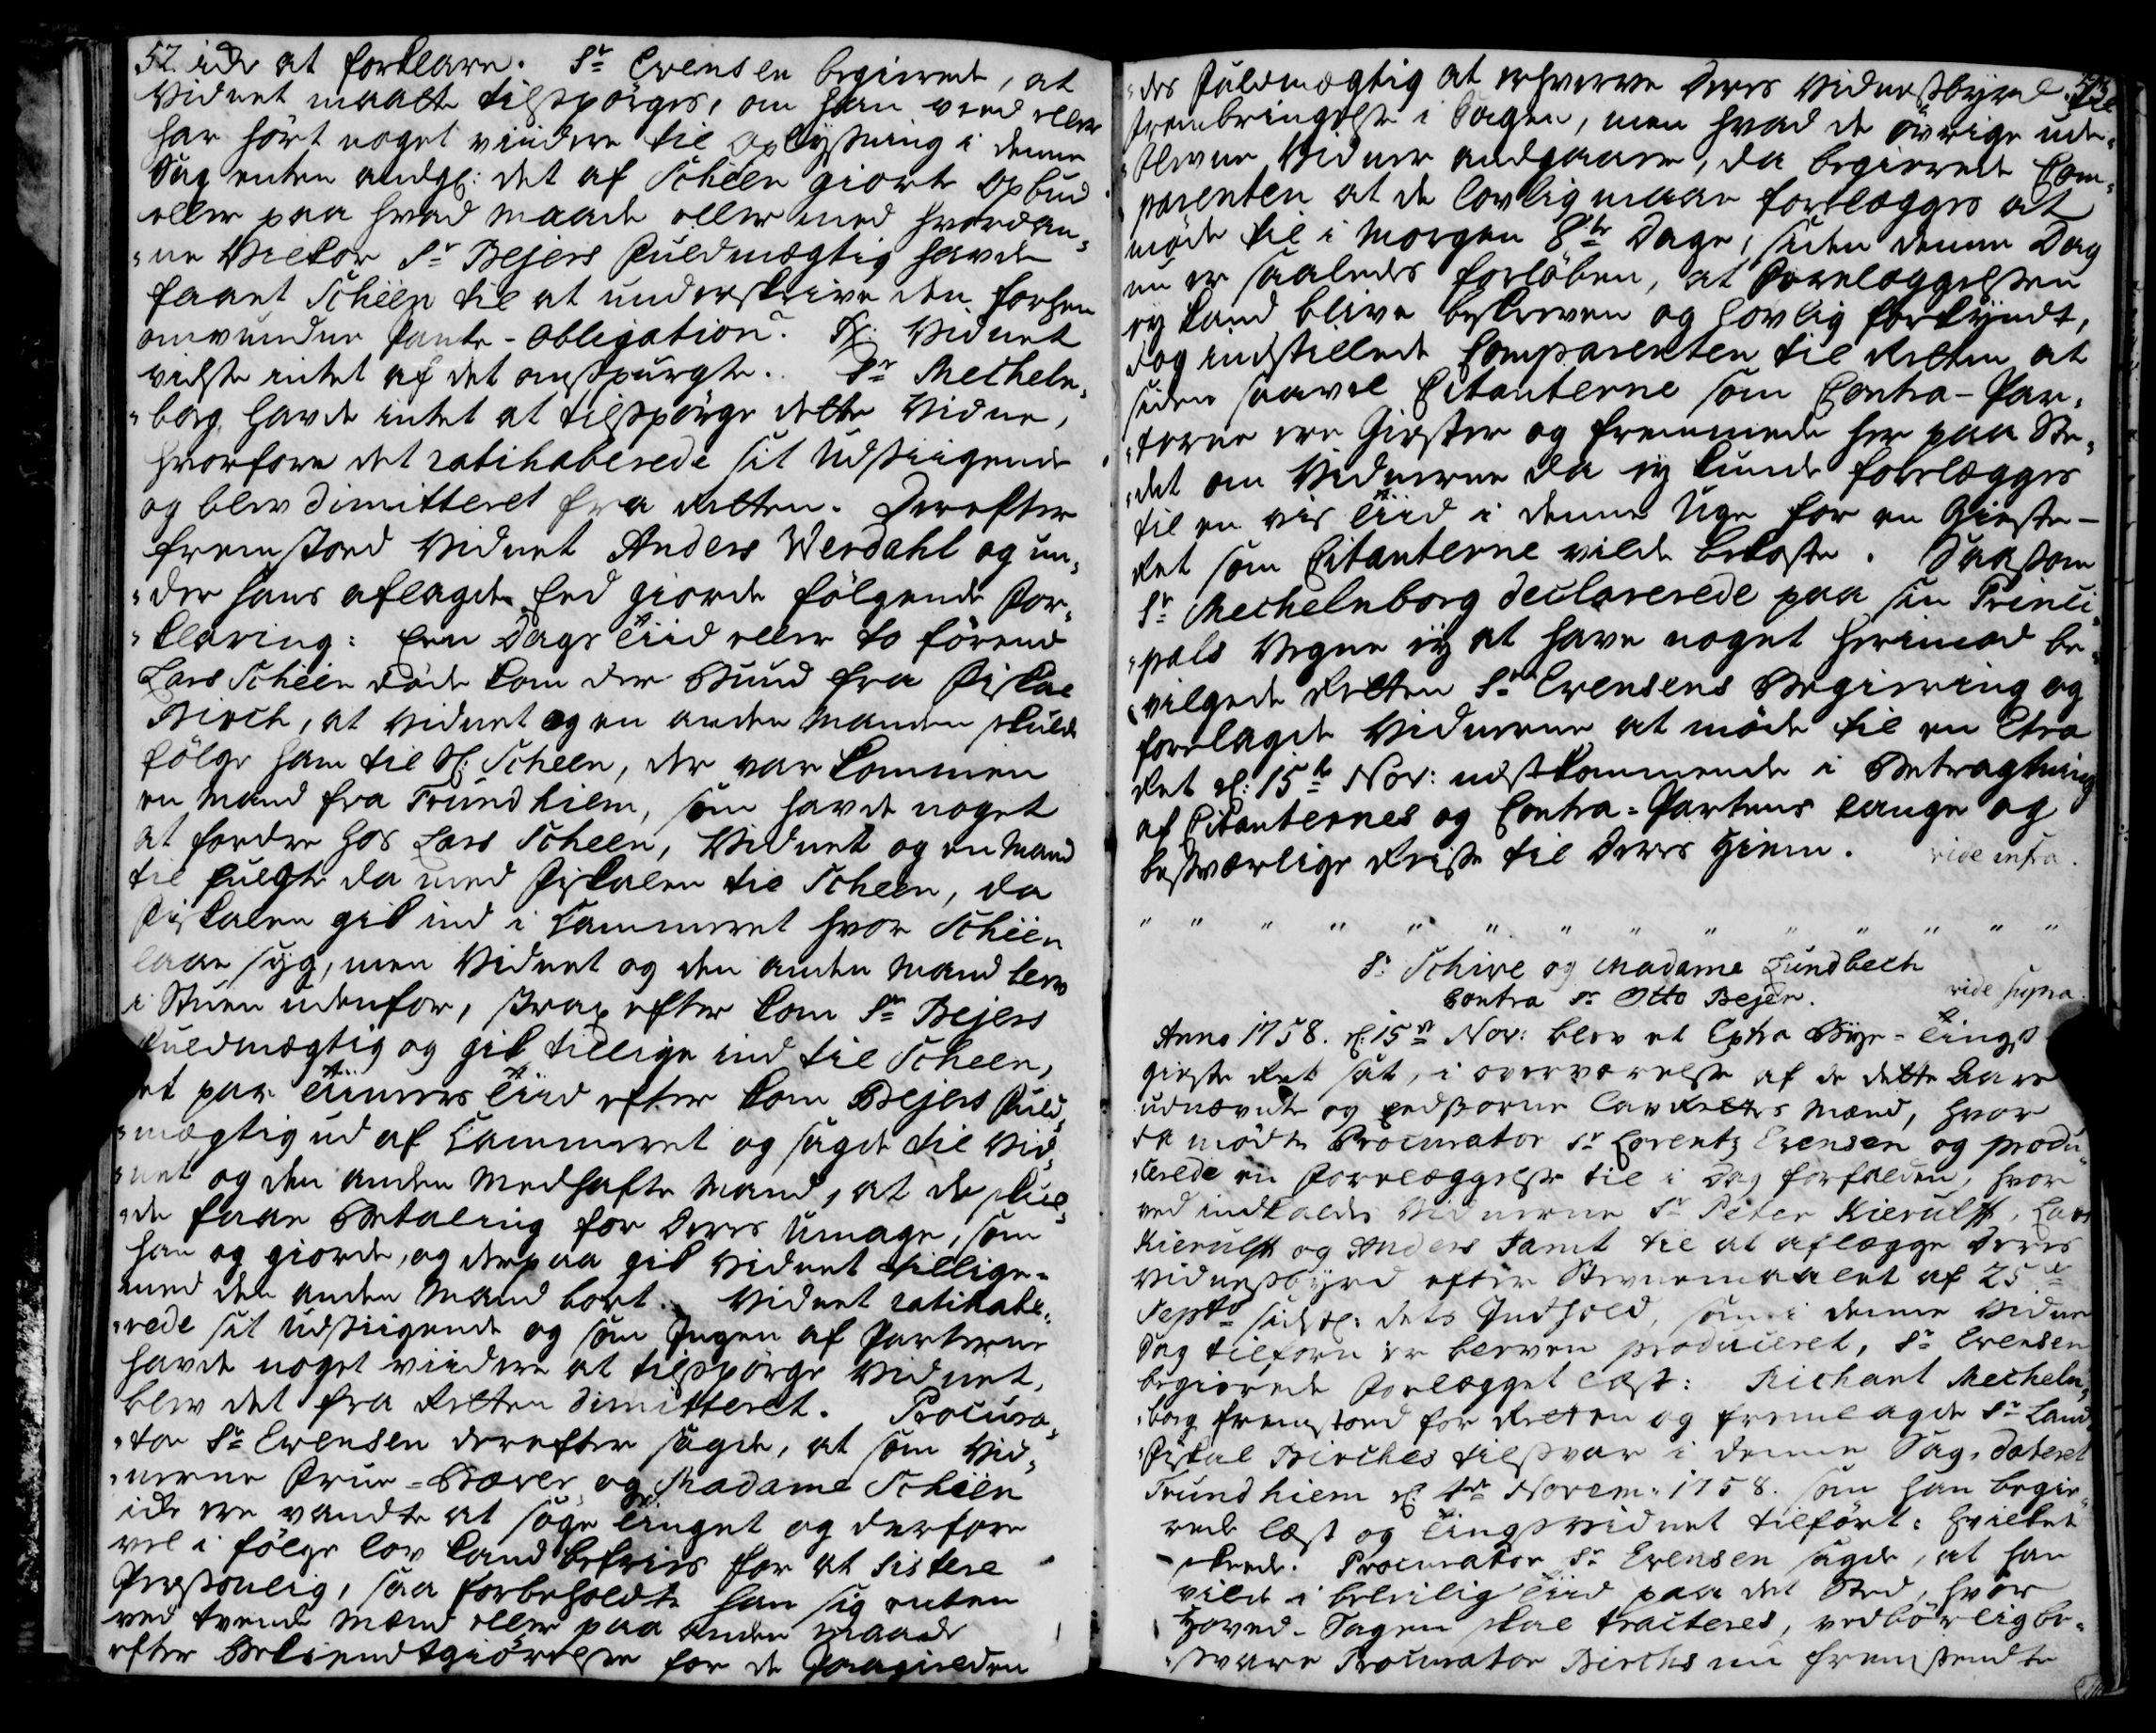 52. icke at forklare. Sr Evensen begierede, at
Vidnet maatte tilspørges, om han veed eller
har hørt noget viidere til Oplysning i denne
Sag enten andg: det af Scheen giorte Opbud
eller paa hvad maade eller med hvordan¬
ne Vielkor Sr Bejers Fuldmægtig havde
faaet Scheen til at underskrive den forhen
omrundne Pante-obligation? Rx: Vidnet
vidste intet af det omspurgte. Sr Mecheln¬
borg havde intet at tilspørge dette Vidne,
hvorfore det ratihaberede sit Udsiigende
og blev dimitteret fra Retten. Derefter
fremstoed Vidnet Anders Werdahl og un¬
der hans aflagde Eed giorde følgende For¬
klaring: Een Dags Tiid eller to førend
Lars Scheen døde kom der Bud fra Fiskal
Birch, at Vidnet og en anden Manden skulde
følge ham til Sl: Scheen, der var kommen
en Mand fra Trundhiem, som havde noget
at fordre hos Lars Scheen, Vidnet og en Mand
til fulgte da med Fiskalen til Scheen, da
Fiskalen gik ind i Kammeret hvor Scheen
laae syg, men Vidnet og den anden Mand blev
i Stuen udenfor, strax efter kom Sr Bejers
Fuldmægtig og gik tillige ind til Scheen,
et par Timers Tiid efter kom Bejers Fuld¬
mægtig ud af Kammeret og sagde til Vid¬
net og den anden Medhafte Mand, at de skul¬
de faae Betaling for deres Umage, som
han og giorde, og derpaa gik Vidnet tillige¬
med den anden Mand bort. Vidnet ratihabe¬
rede sit Udsiigende og som Ingen af Parterne
havde noget viidere at tilspørge Vidnet,
blev det fra Retten dimitteret. Procura¬
tor Sr Evensen derefter sagde, at som Vid¬
nerne Frue-Barer og Madame Scheen
icke ere vandte at søge Tinget og derfore
vel i følge lov kand befries for at sistere
Personlig, saa forbeholdte han sig enten
ved tvende Mænd eller paa anden maade
efter Bekiendtgiørelse for de Paagieldendes
des Fuldmægtig at erhverve deres Vidnesbyrd til
Frembringelse i Sagen, men hvad de øvrige ude¬
blevne Vidner andgaaer, da begierede Com¬
parenten at de lovlig maae forelægges at
møde til i Morgen 8te Dage, siden denne Dag
nu er saaledes forløben, at Forelæggelsen
ey kand blive beskreven og lovlig forkyndt,
dog indstillede Comparenten til Retten at
siden saavel Citanterne som Contra-Par¬
terne ere Giester og fremmede her paa Ste¬
det om Vidnerne da ey kunde forelægges
til en vis Tiid i denne Uge for en Gieste-
Ret som Citanterne vilde bekoste. Saasom
Sr Mechelnborg declarerede paa sin Princi¬
pals Vegne ey at have noget herimod be¬
vilgede Retten Sr Evensens Begiering og
forelagde Vidnerne at møde til en Extra
Ret d: 15de Nov: nestkommende i Betragtning
af Citanternes og Contra-Partens lange og
besværlige Reise til deres Hiem. vide infra.
Sr Schive og Madame Lundbech
contra Sr Otto Bejer. vide supra.
Anno 1758. d: 15de Nov: blev et Extra Bye-Tings
gieste Ret sat, i overværelse af de dette Aar
udnævnte og eedsorne Lavrettes Mænd, hvor
da mødte Procurator Sr Lorentz Evensen og produ¬
cerede en Forelæggelse til i Dag forfalden, hvor
ved indkaldes Vidnerne Sr Peter Kierulff, Lars
Kierulff og Anders Tamt til at aflægge deres
Vidnesbyrd efter Stevnemaalet af 25de
Septbr sidstl: dets Indhold, som i denne Vidne
Sag tilforn er bleven produceret, Sr Evensen
begierede Forlegget læst: Richart Mecheln¬
borg fremstoed for Retten og fremlagde Sr Land
Fiskal Birches tilsvar i denne Sag, dateret
Trundhiem d: 4de Novem: 1758. som han begie¬
rede læst og Tingsvidnet tilført: hvilket
skeede. Procurator Sr Evensen sagde, at han
vilde i beleilig Tiid paa det Sted, hvor
Hoved-Sagen skal tracteres, vedbørlig be¬
svare Procurator Birchs nu fremsendte